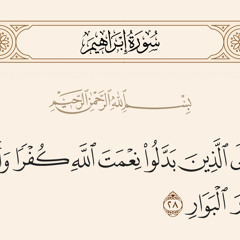 سُورَةُ إِبْرَاهِيمَ
بِسْمِ ٱللَّهِ ٱلرَّحْمَٰنِ ٱلرَّحِيمِ
ٱلَّذِينَ بَدَّلُوا۟ نِعْمَتَ ٱللَّهِ كُفْرًا
ٱلْبَوَارِ ٢٨